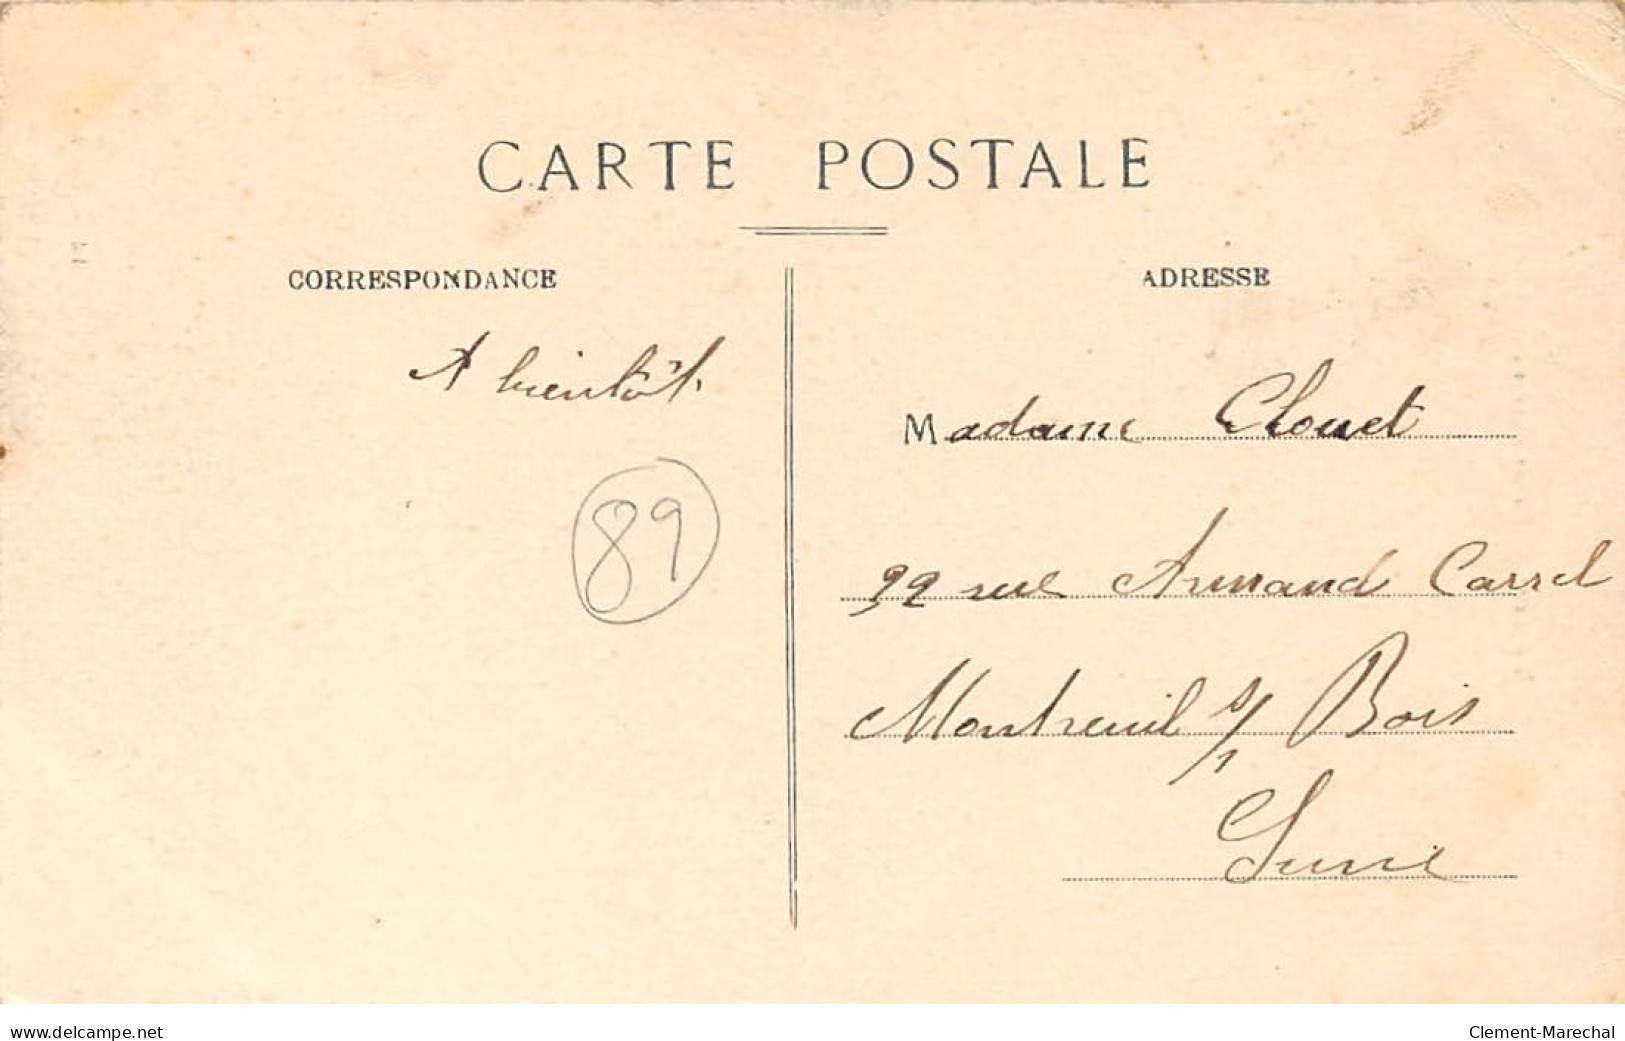 CARTE POSTALE
CORRESPONDANCE
A bientôt.
89
ADRESSE
Madame Clouet
92 rue Armand Carrel
Montreuil s/ Bois
Seine
www.delcampe.net
Clement-Marechal